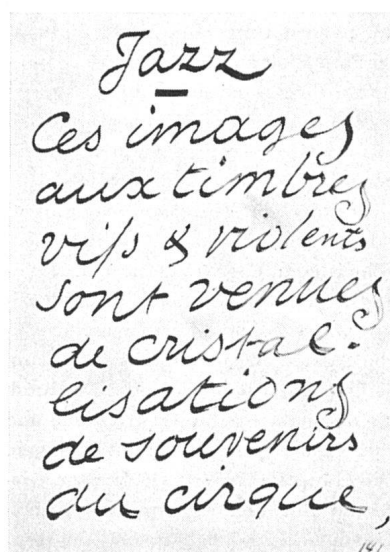 Jazz
Ces images
aux timbres
vifs & violents
sont venues
de cristal-
lisations
de souvenirs
du cirque,